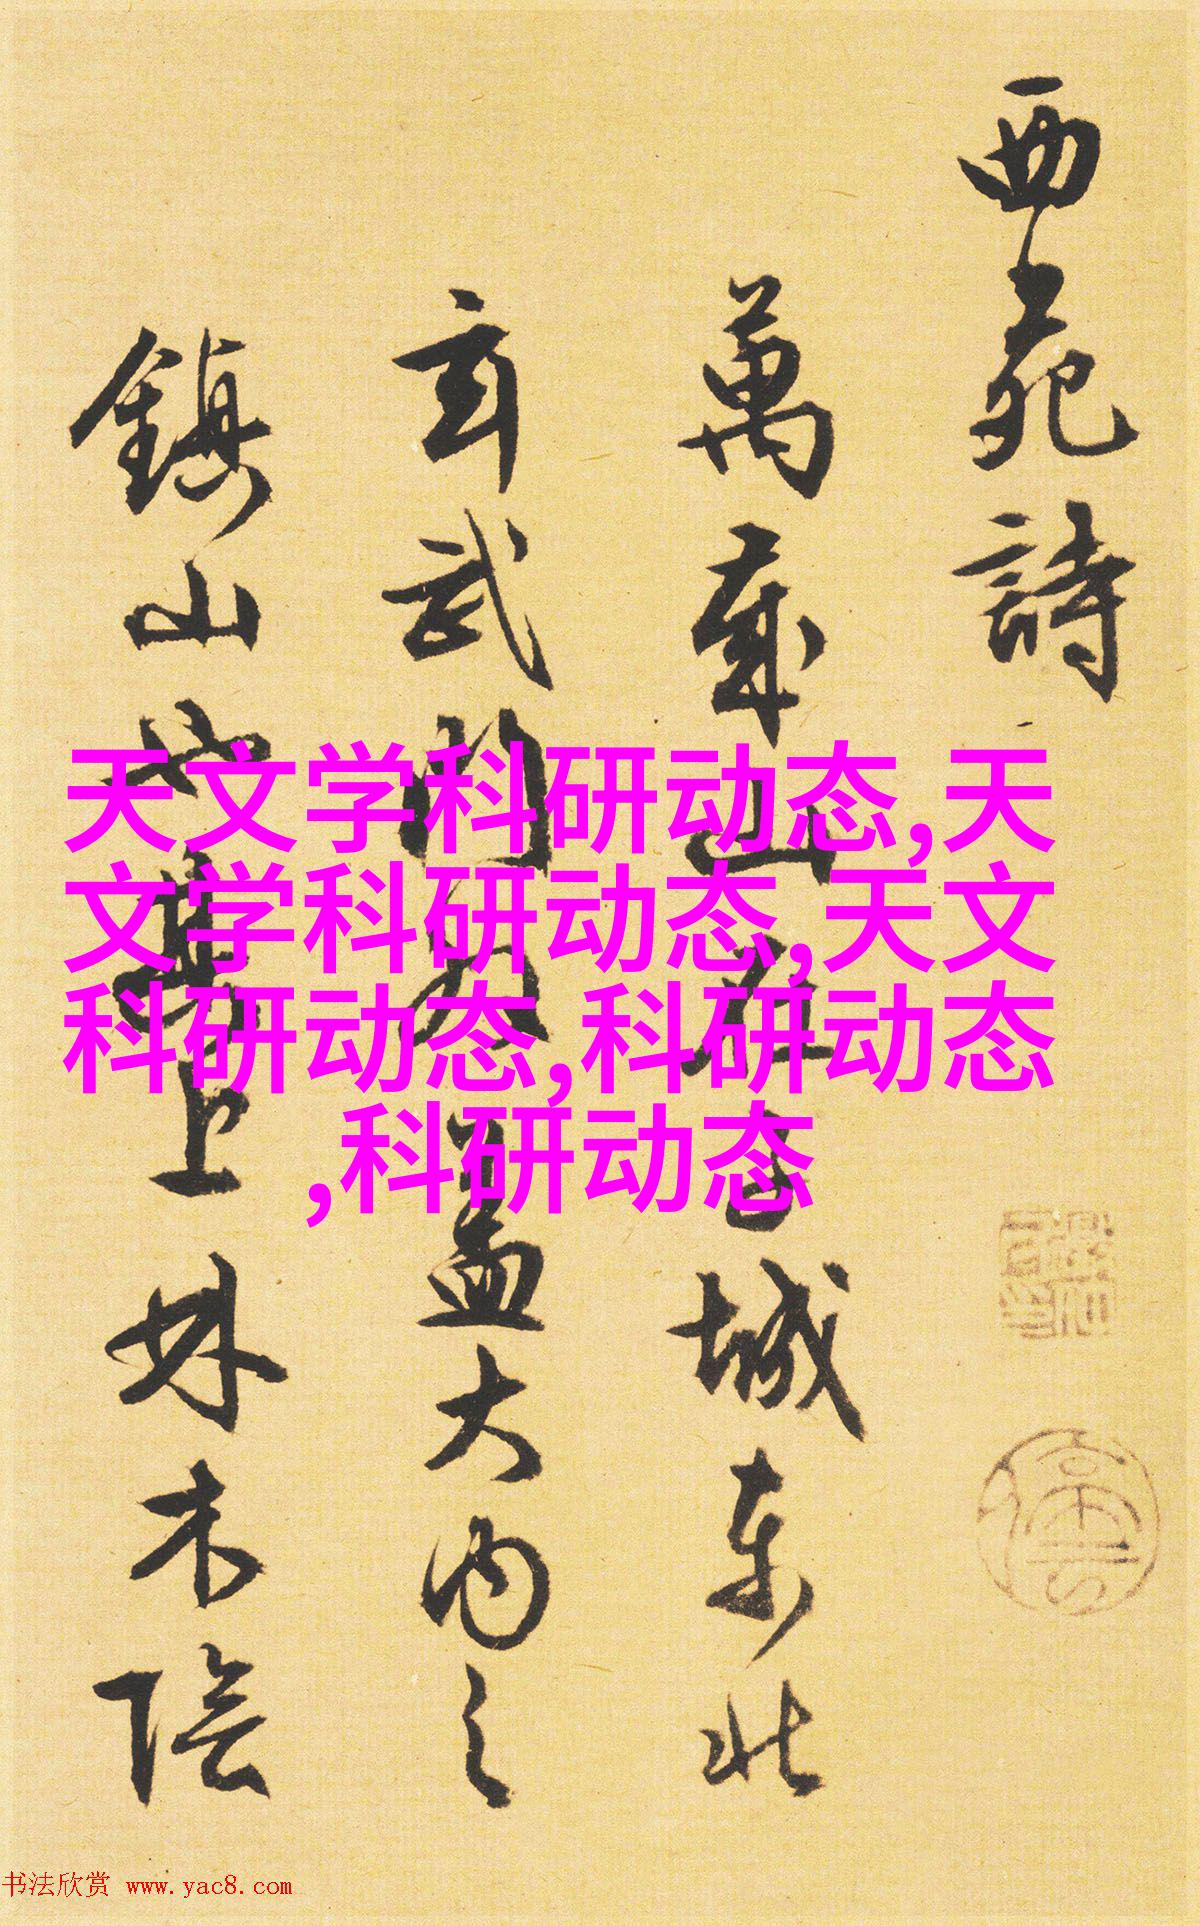 西苑詩
萬歲山在子城東北
玄武門外盖大内之
鎮山也其上林木陰
天文学科研动态,天
文学科研动态,天文
科研动态,科研动态
,科研动态
书法欣赏 www.yac8.com